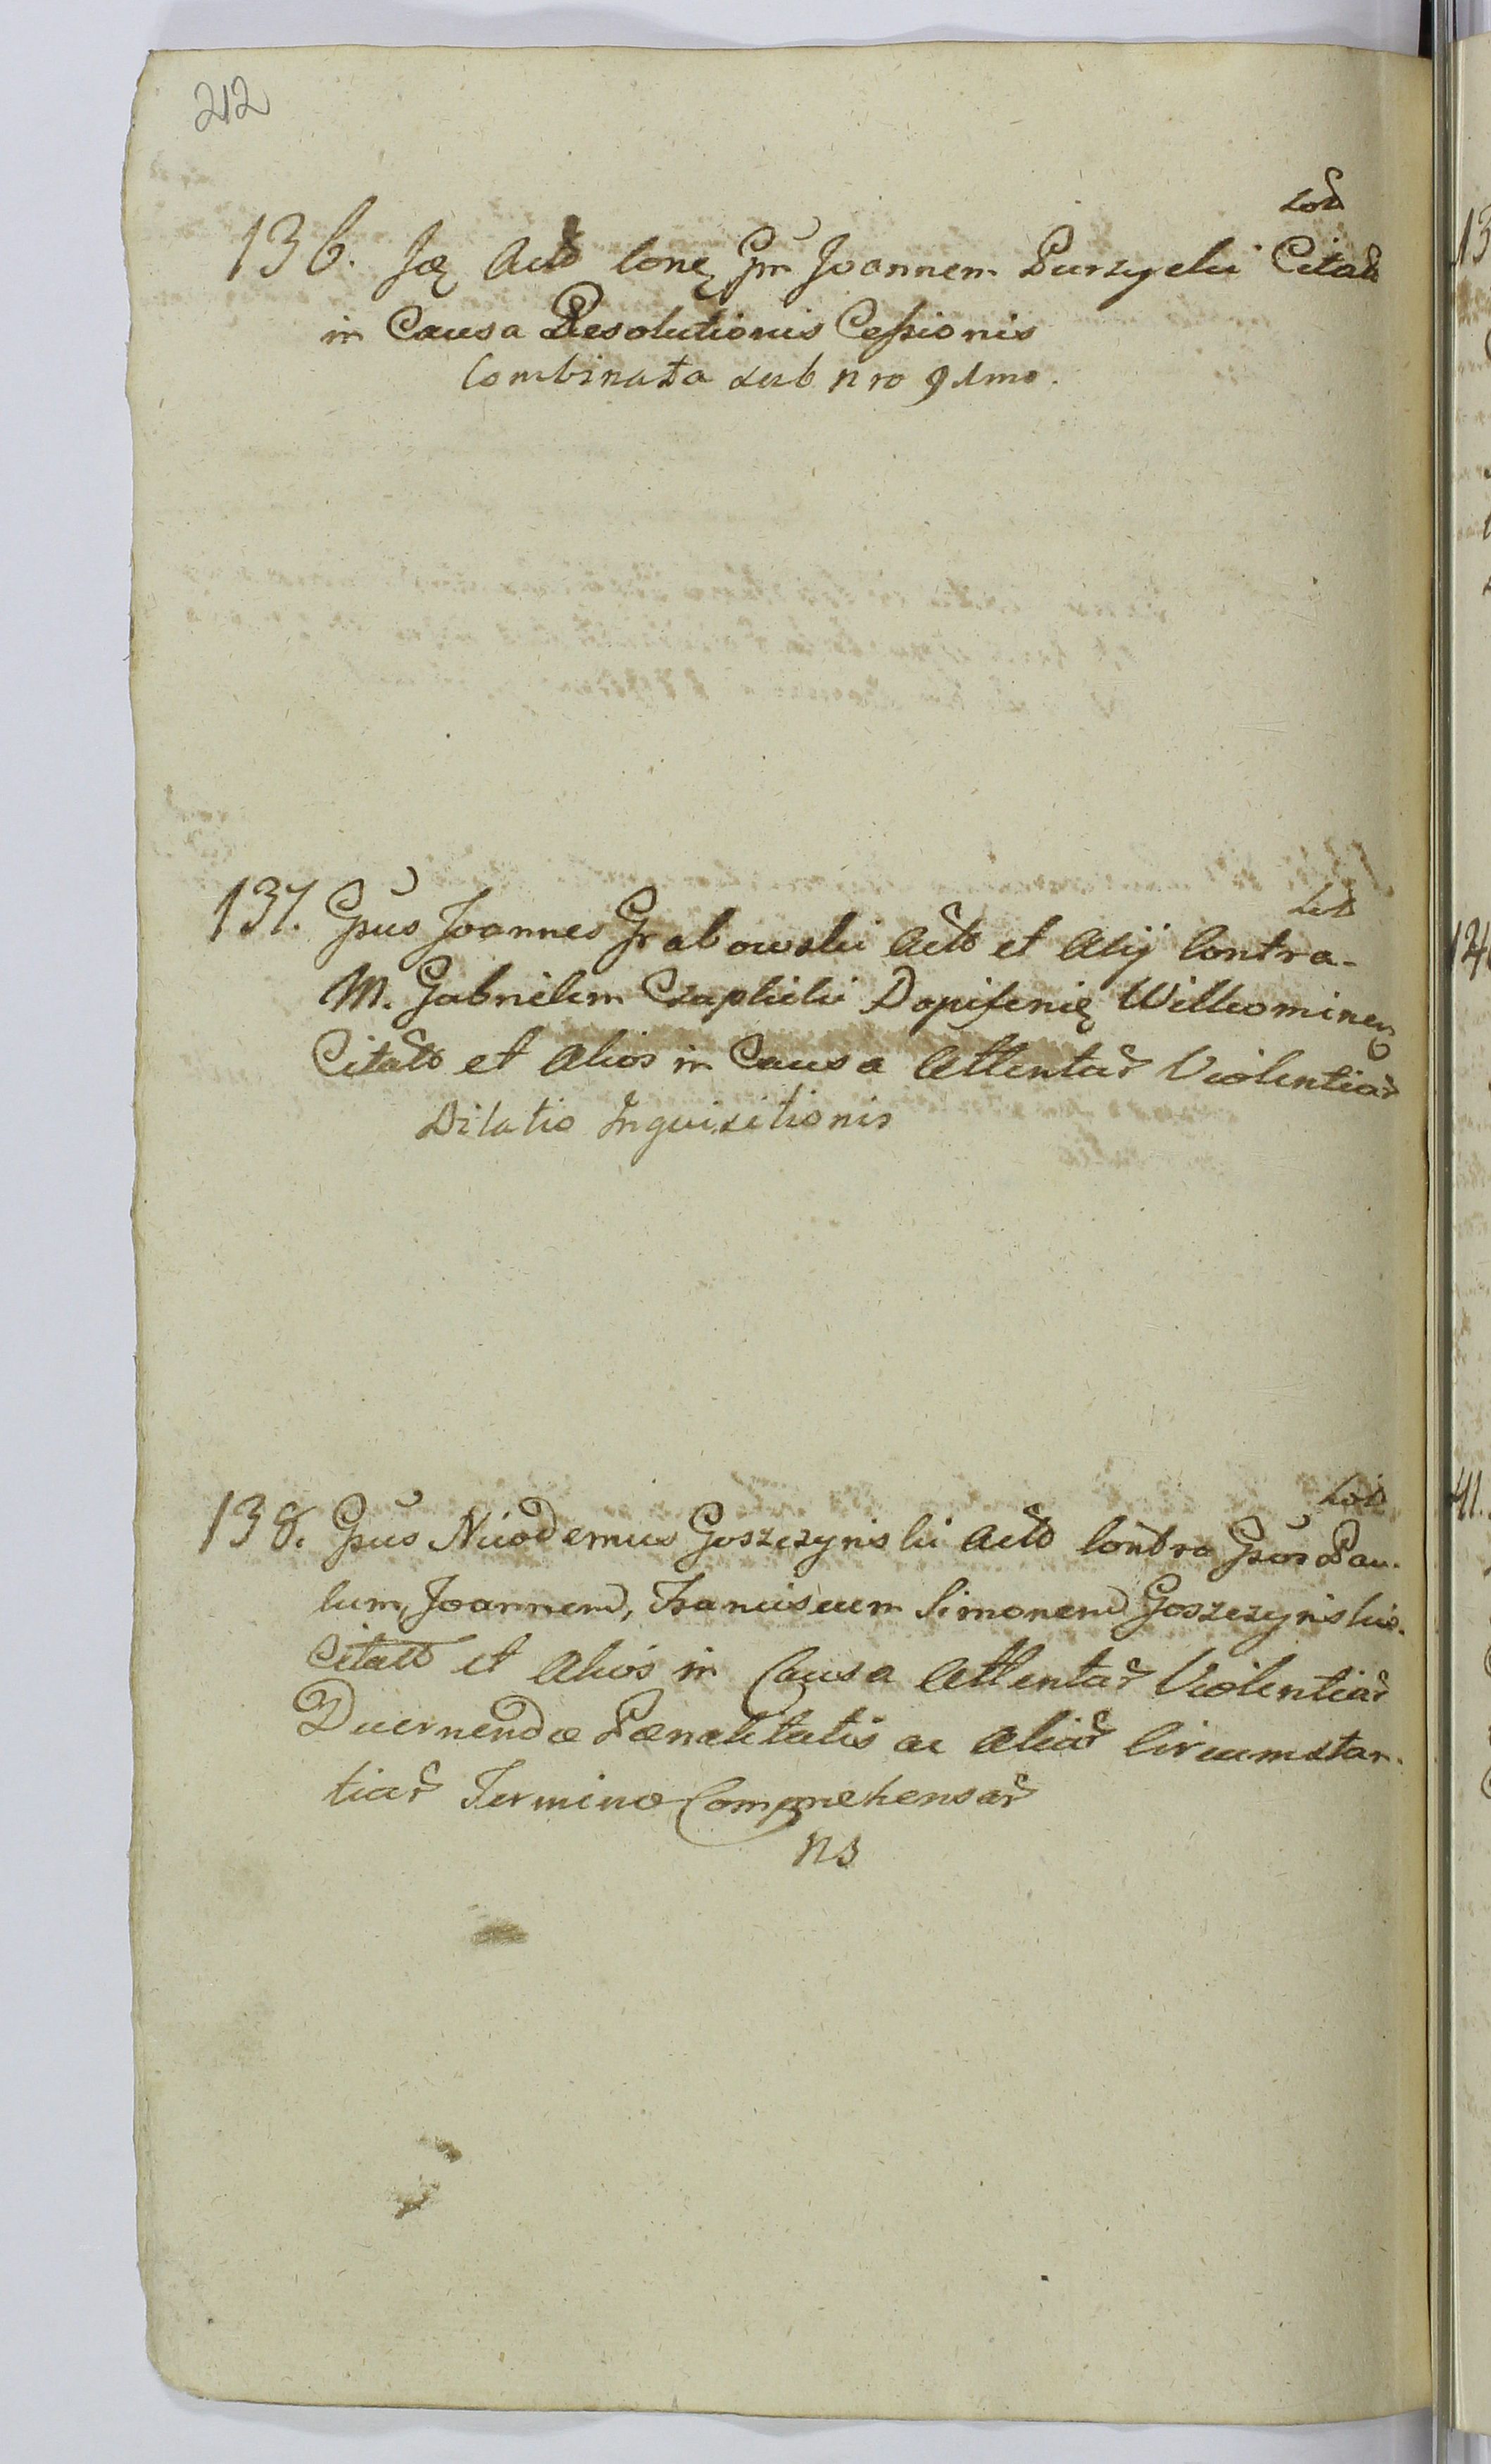 212
136. Ję Act Conę Gm Joannem Purzycki Citat
in Causa Resolutionis Cessionis
Combinata sub nro 91mo.
137. Gsus Joannes Grabowski Act et alij Contra
M. Gabrielem Czaplicki Dapiferię
Citat et alios in Causa Attentar Violentiar
Dilatio Inquisitionis
138. Gsus Nicodemus Goszczynski Act Contra Gsos Pau-
lum, Joannem, Franciscum Simonem Goszczynskie
Citatt et alios in Causa Attentar Violentiar
Decernendæ Pænalitatis ac aliar Circumstan-
tiar Termino Comprehensar
NS